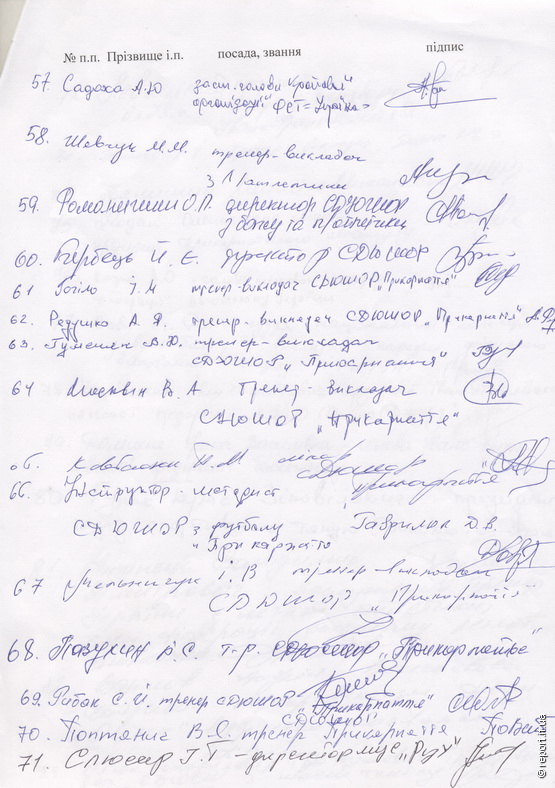 № п.п. Прізвище і.п. посада, звання підпис
57. Садаха А.Ю заст. голови крайової
організації ФСТ "Україна"
58. Шевчук М.М. тренер-викладач
з л/атлетики
59. Романишин О.П. директор СДЮШОР
з боксу та
60. Й. Є. директор СДЮШОР
61 І.М тренер-викладач СДЮШОР "Прикарпаття"
62. Редушко А. Я. тренер-викладач СДЮШОР "Прикарпаття"
63. В.Ф. тренер-викладач
СДЮШОР "Прикарпаття"
64 Москвін В. А тренер-викладач
СДЮШОР "Прикарпаття"
65. П.М. лікар СДЮШОР
Прикарпаття
66. Інструктор-методист
СДЮШОР з футболу Гаврилюк Д.В.
"Прикарпаття
67 Мельничук І. В тренер-викладач
СДЮШОР "Прикарпаття"
68. т-р. СДЮШОР "Прикарпатьє"
69. Рибак С.Й. тренер СДЮШОР "Прикарпаття"
СДЮШОР
70. В.С. тренер Прикарпаття
71. Слюсар Г.Т - директор МЦС "Рух"
© report.if.ua